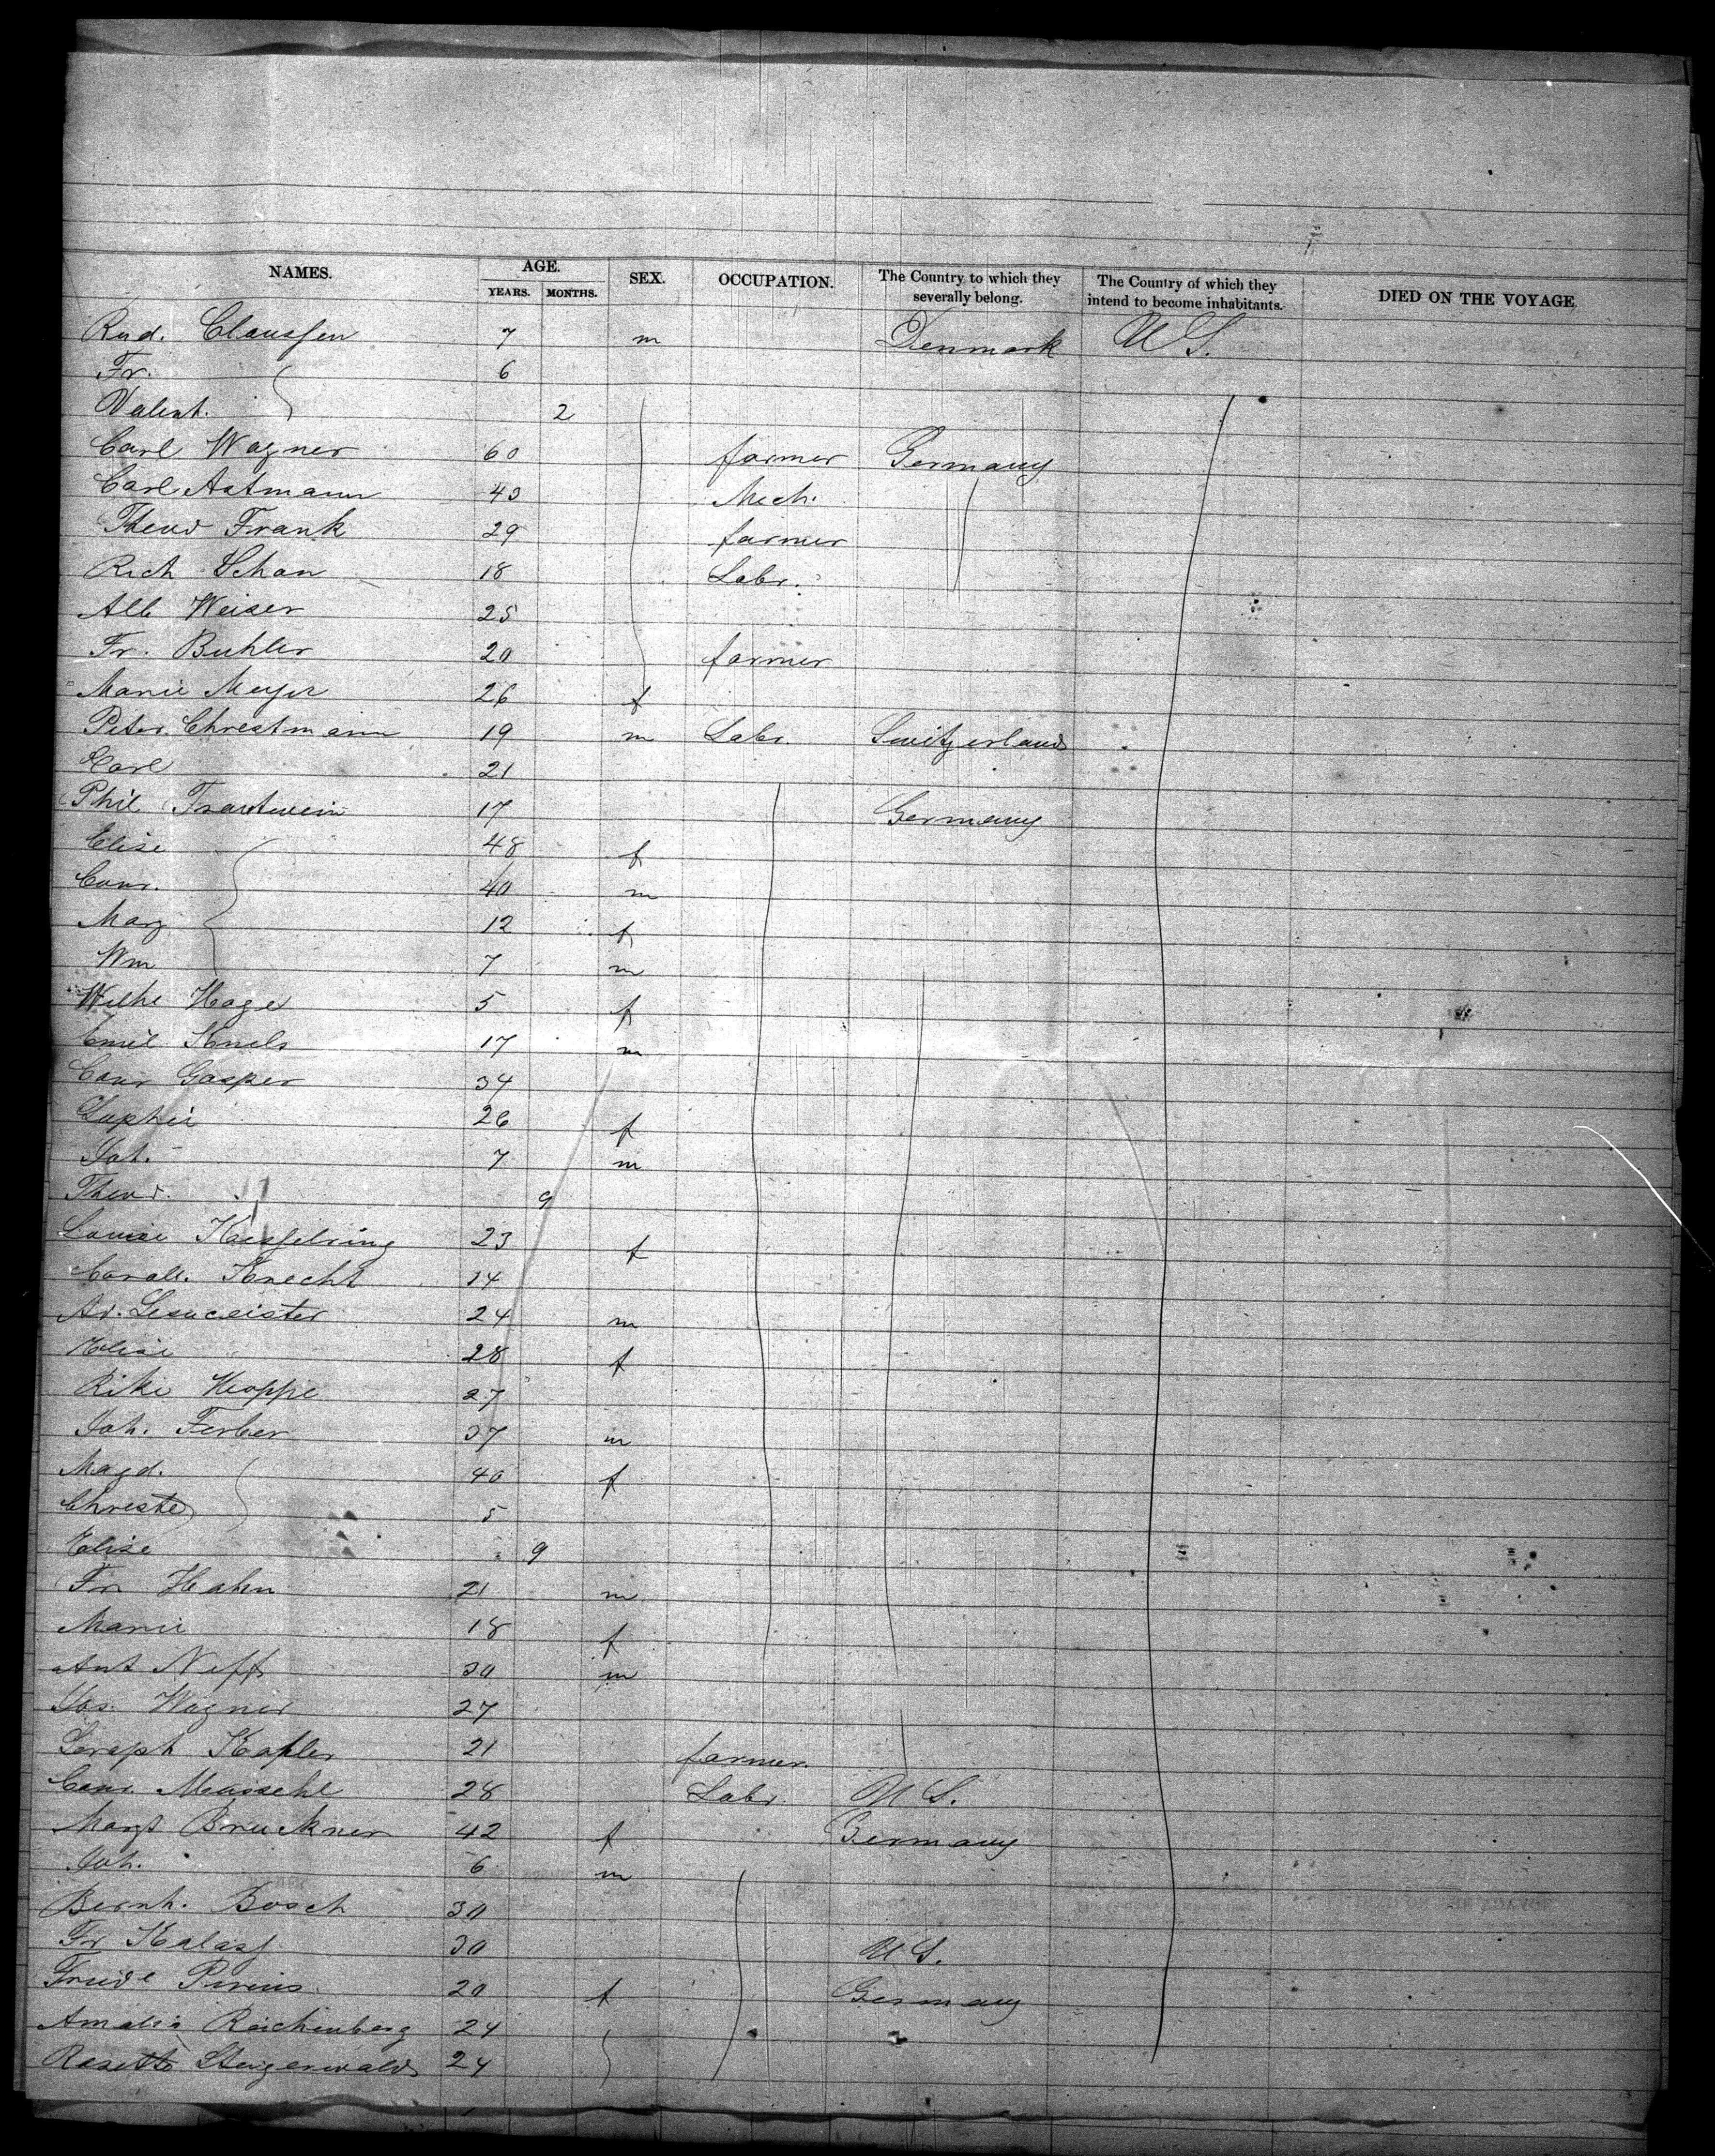 NAMES. AGE. SEX. OCCUPATION. The Country to which they severally belong. The Country of which they intend to become inhabitants. DIED ON THE VOYAGE.
YEARS. MONTHS.
Rud. Claussen 7 m Denmark U S.
Fr. 6
Valent. 2
Carl Wagner 60 farmer Germany
Carl Astmann 43 Mech.
Theod Frank 29 farmer
Rich Schan 18 Labr.
Alb Weiser 25
Fr. Buhler 20 farmer
Marie Meyer 26 f
Peter Christmann 19 m Labr. Switzerland
Carl 21
Phil Trautwein 17 Germany
Elise 48 f
Conr. 40 m
Marg 12 f
Wm 7 m
Wilhe Hage 5 f
Emil Knels 17 m
Conr Gasper 34
Sophie 26 f
Joh. 7 m
Theod. 9
Louise Kesselring 23 f
Knecht 34
Ad. 24 m
Elise 28 f
Rike Hoppe 27
Joh. Ferber 37 m
Magd. 40 f
Christe 5
Elise 9
Fr. Hahn 21 m
Marie 18 f
Ant Neff 30 m
Jos. Wagner 27
Seraph Kapler 21 farmer.
Conr. Musschl 28 Labr. U S.
Margt Bruckner 42 f Germany
Joh. 6 m
Bernh. Bosch 30
Fr Kalass 30 U S.
Friede 20 f Germany
Amalia Reichenberg 24
Rosette Steigerwald 24